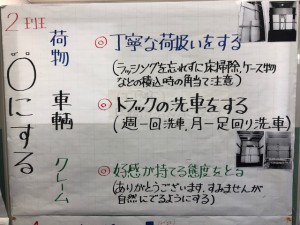 2
荷物
◎丁寧な荷扱いをする
(ラッシングを忘れずに床掃除、ケース物
などの積込時の角当て注意)
車輌
◎トラックの洗車をする
(週一回洗車、月一足回り洗車)
クレーム
◎好感が持てる態度をとる
(ありがとうございます、すみませんが
自然にでるようにする)
0にする